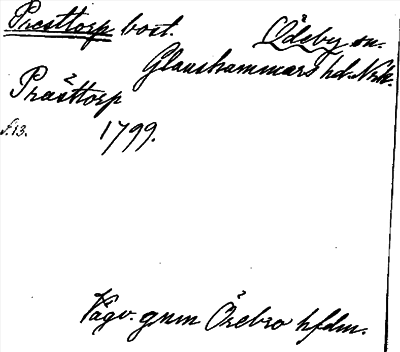 Presttorp bost. Ödeby sn.
Glanshammars hd. Nrk.
Prästtorp
s. 13. 1799.
Vägv. gnm Örebro hfdm.